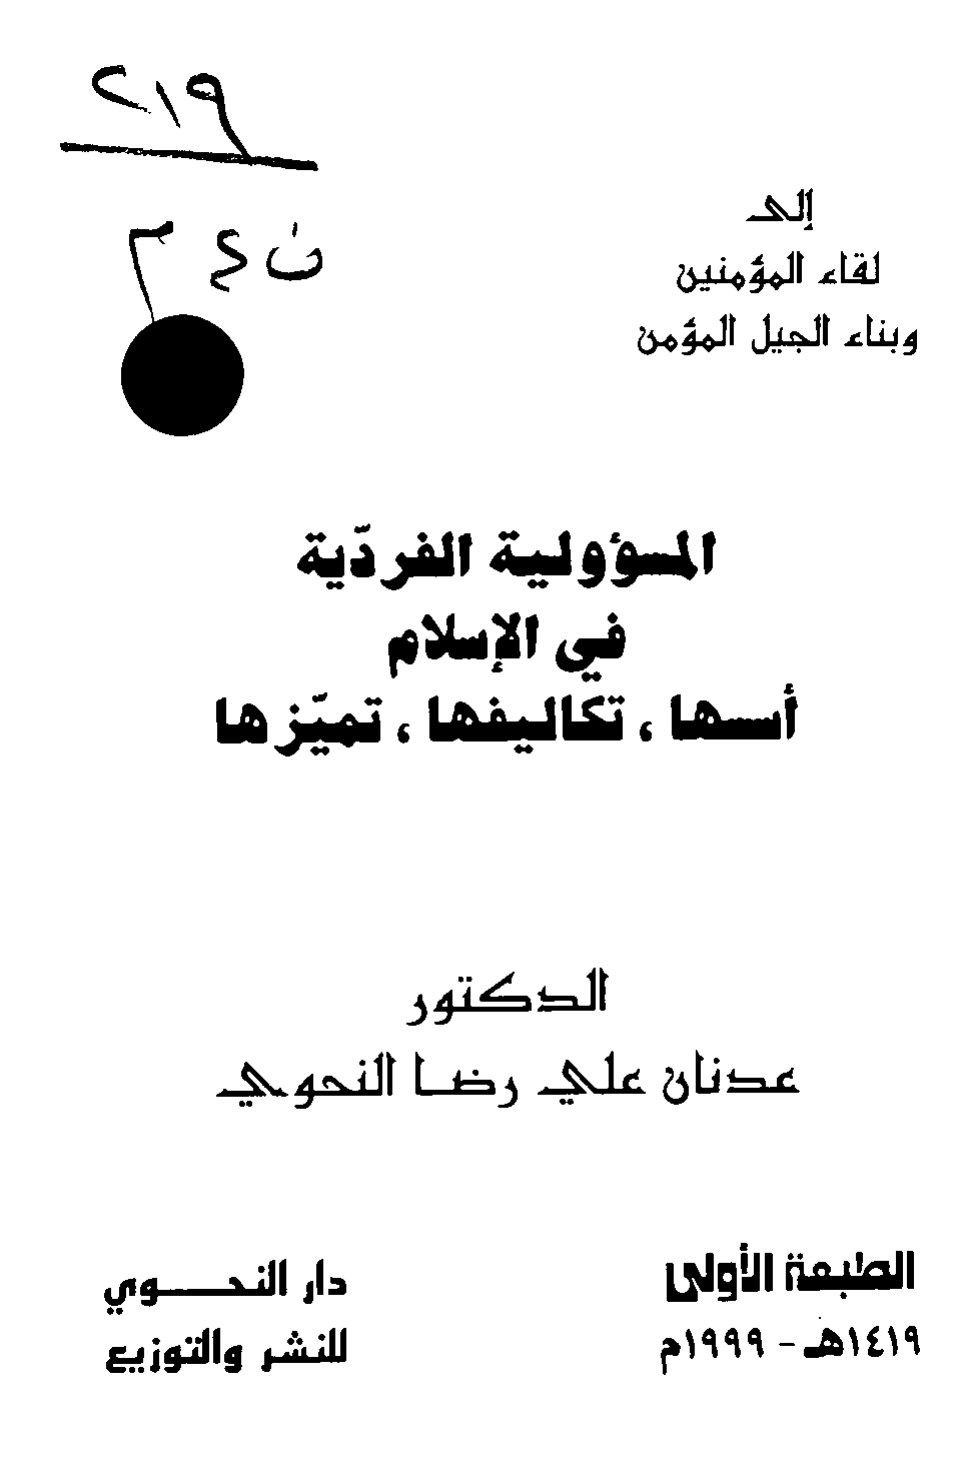 ٢١٩
ن ع م
إلى
لقاء المؤمنين
وبناء الجيل المؤمن
المسؤولية الفردّية
في الإسلام
أسسها ، تكاليفها ، تميّزها
الدكتور
عدنان علي رضا النحوي
الطبعة الأولى
١٤١٩هـ - ١٩٩٩م
دار النحـــوي
للنشر والتوزيع